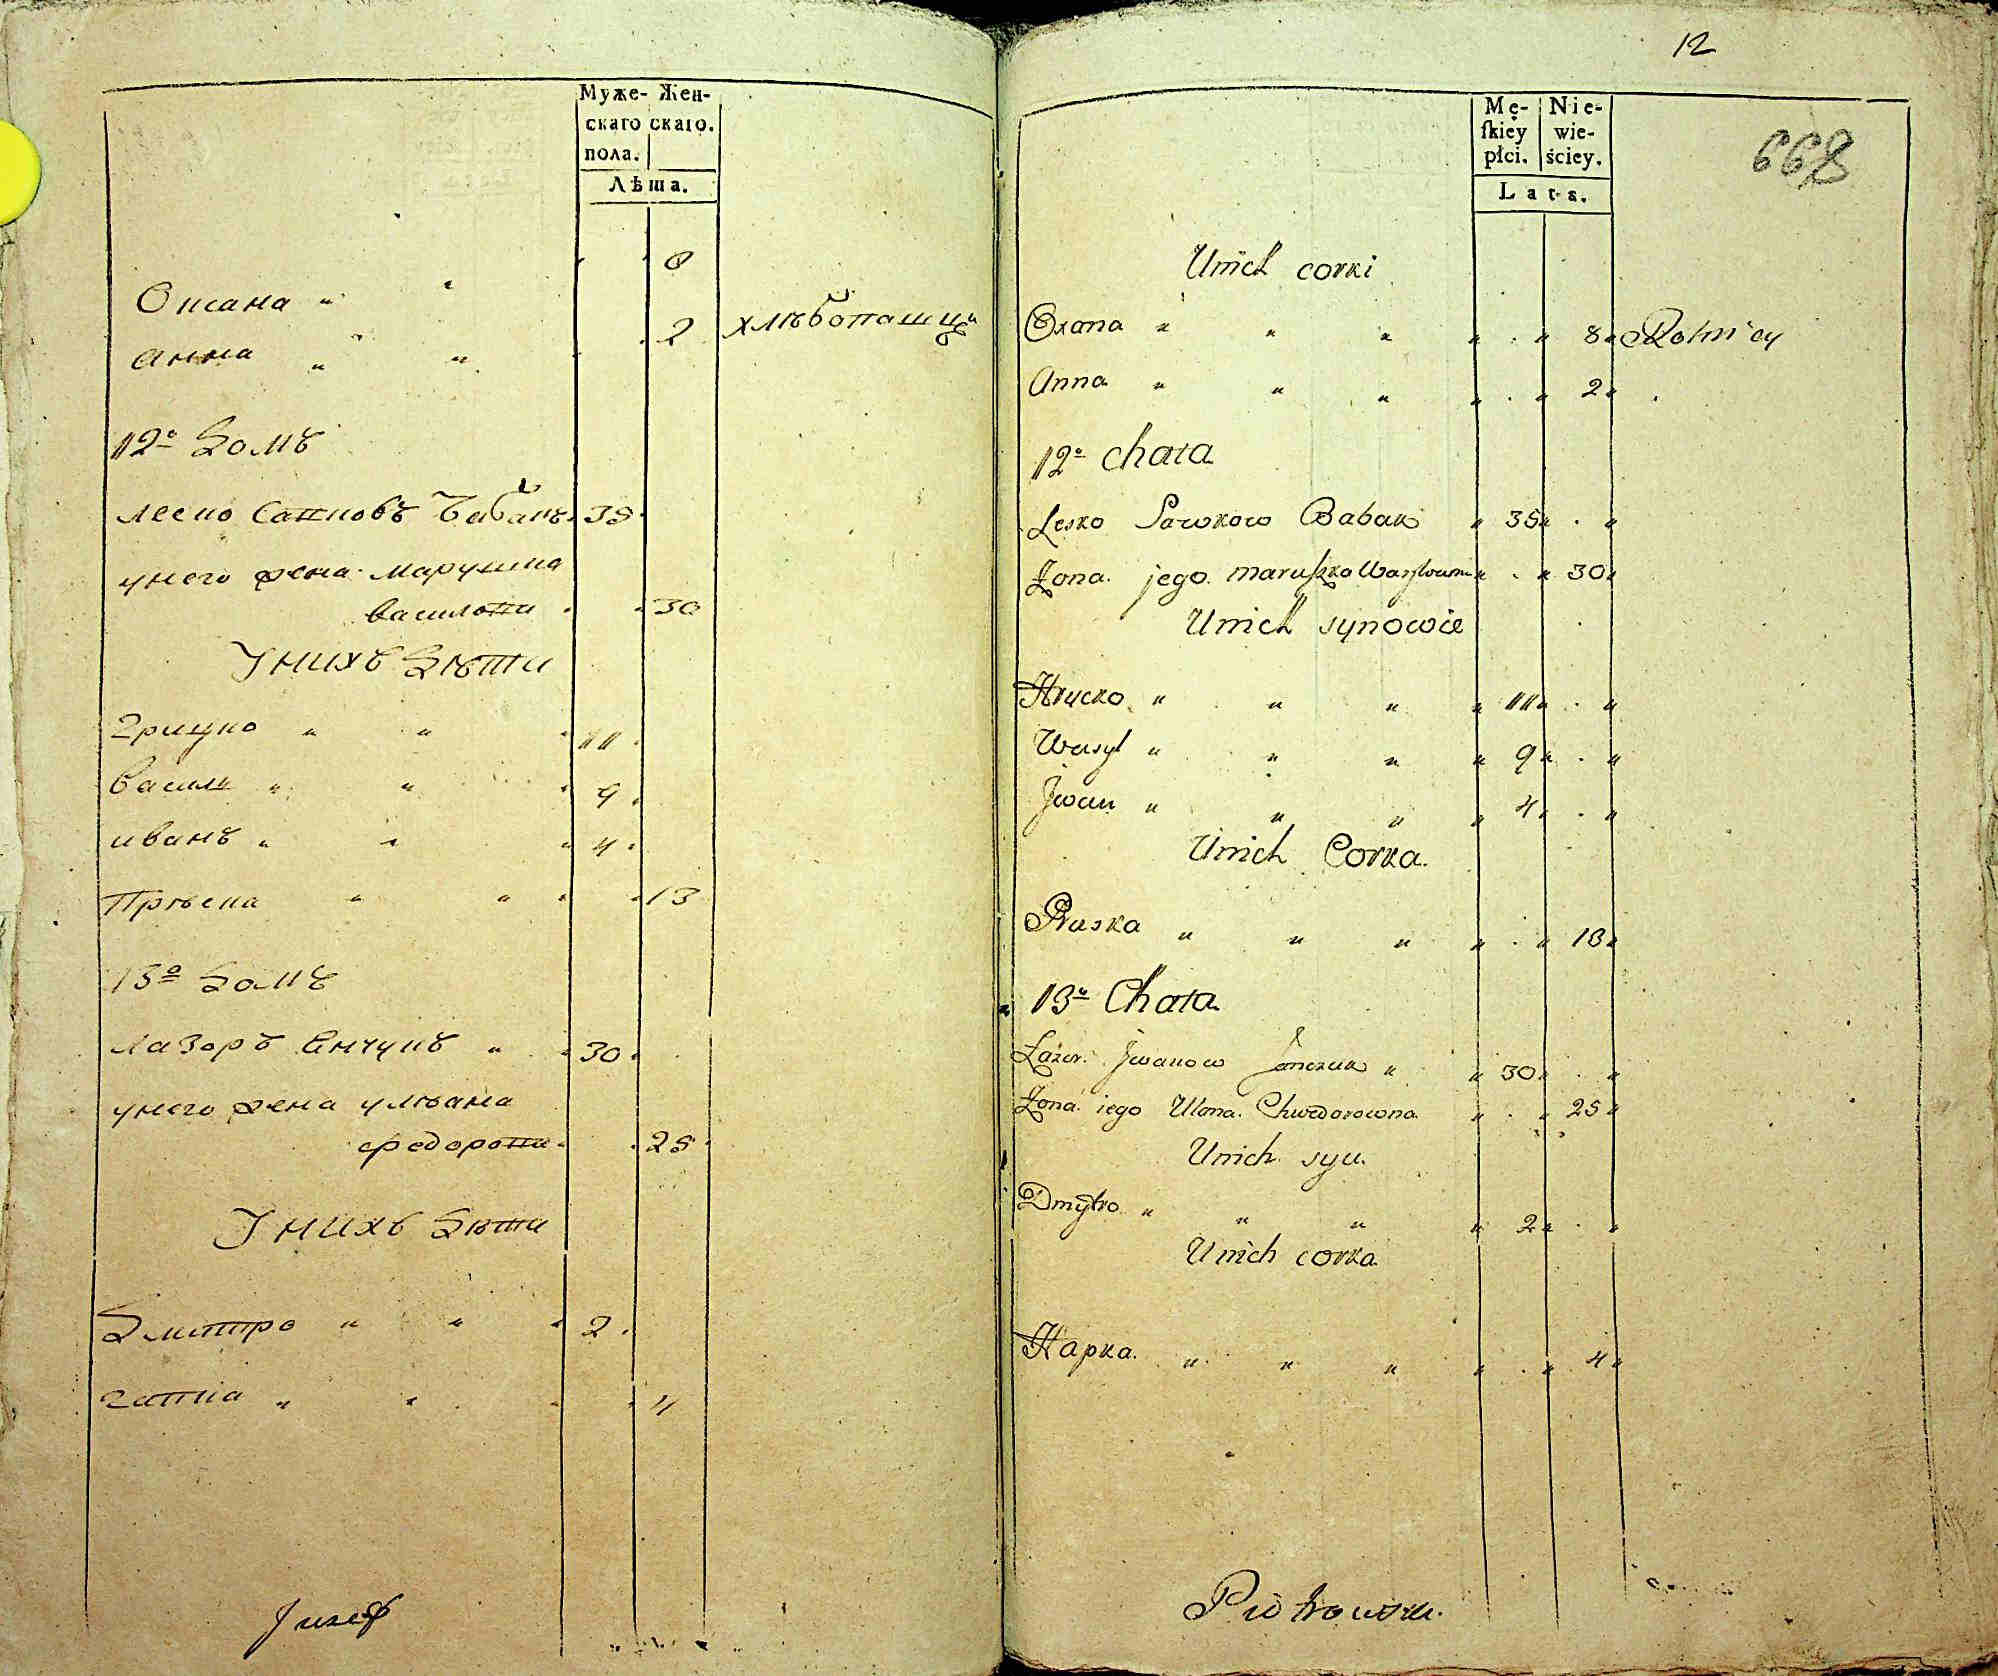 Муже- Жен-
скаго скаго.
пола.
Лѣта.
Оксана 8
Анна 2 хлѣбопашцы
12º Домъ
Леско Савковъ Бабакъ 35
у него жена Марушка
Василови 30
У нихъ дѣти
Грицко 11
Василь 9
Иванъ 4
Прѣска 13
13º Домъ
Лазоръ Янчукъ 30
у него жена Улѣана
Федорови 25
У нихъ дѣти
Дмитро 2
Гапка 4
Jozef
12
668
Mę- Nie-
ſkiey wie-
płci. ściey.
Lata.
Unich corki
Oxana 8 Rolnicy
Anna 2
12º chata
Lesko Sawkow Babak 35
Żona jego Maruszka 30
Unich synowie
Hrycko 11
Wasyl 9
Jwan 4
Unich Corka.
Praska 13
13º Chata
Łazor Jwanow Janczuk 30
Żona iego Ulana Chwedorowna 25
Unich syn.
Dmytro 2
Unich corka
Hapka. 4
Piotrowski.